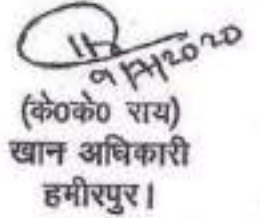 (के0के0 राय)
खान अधिकारी
हमीरपुर।